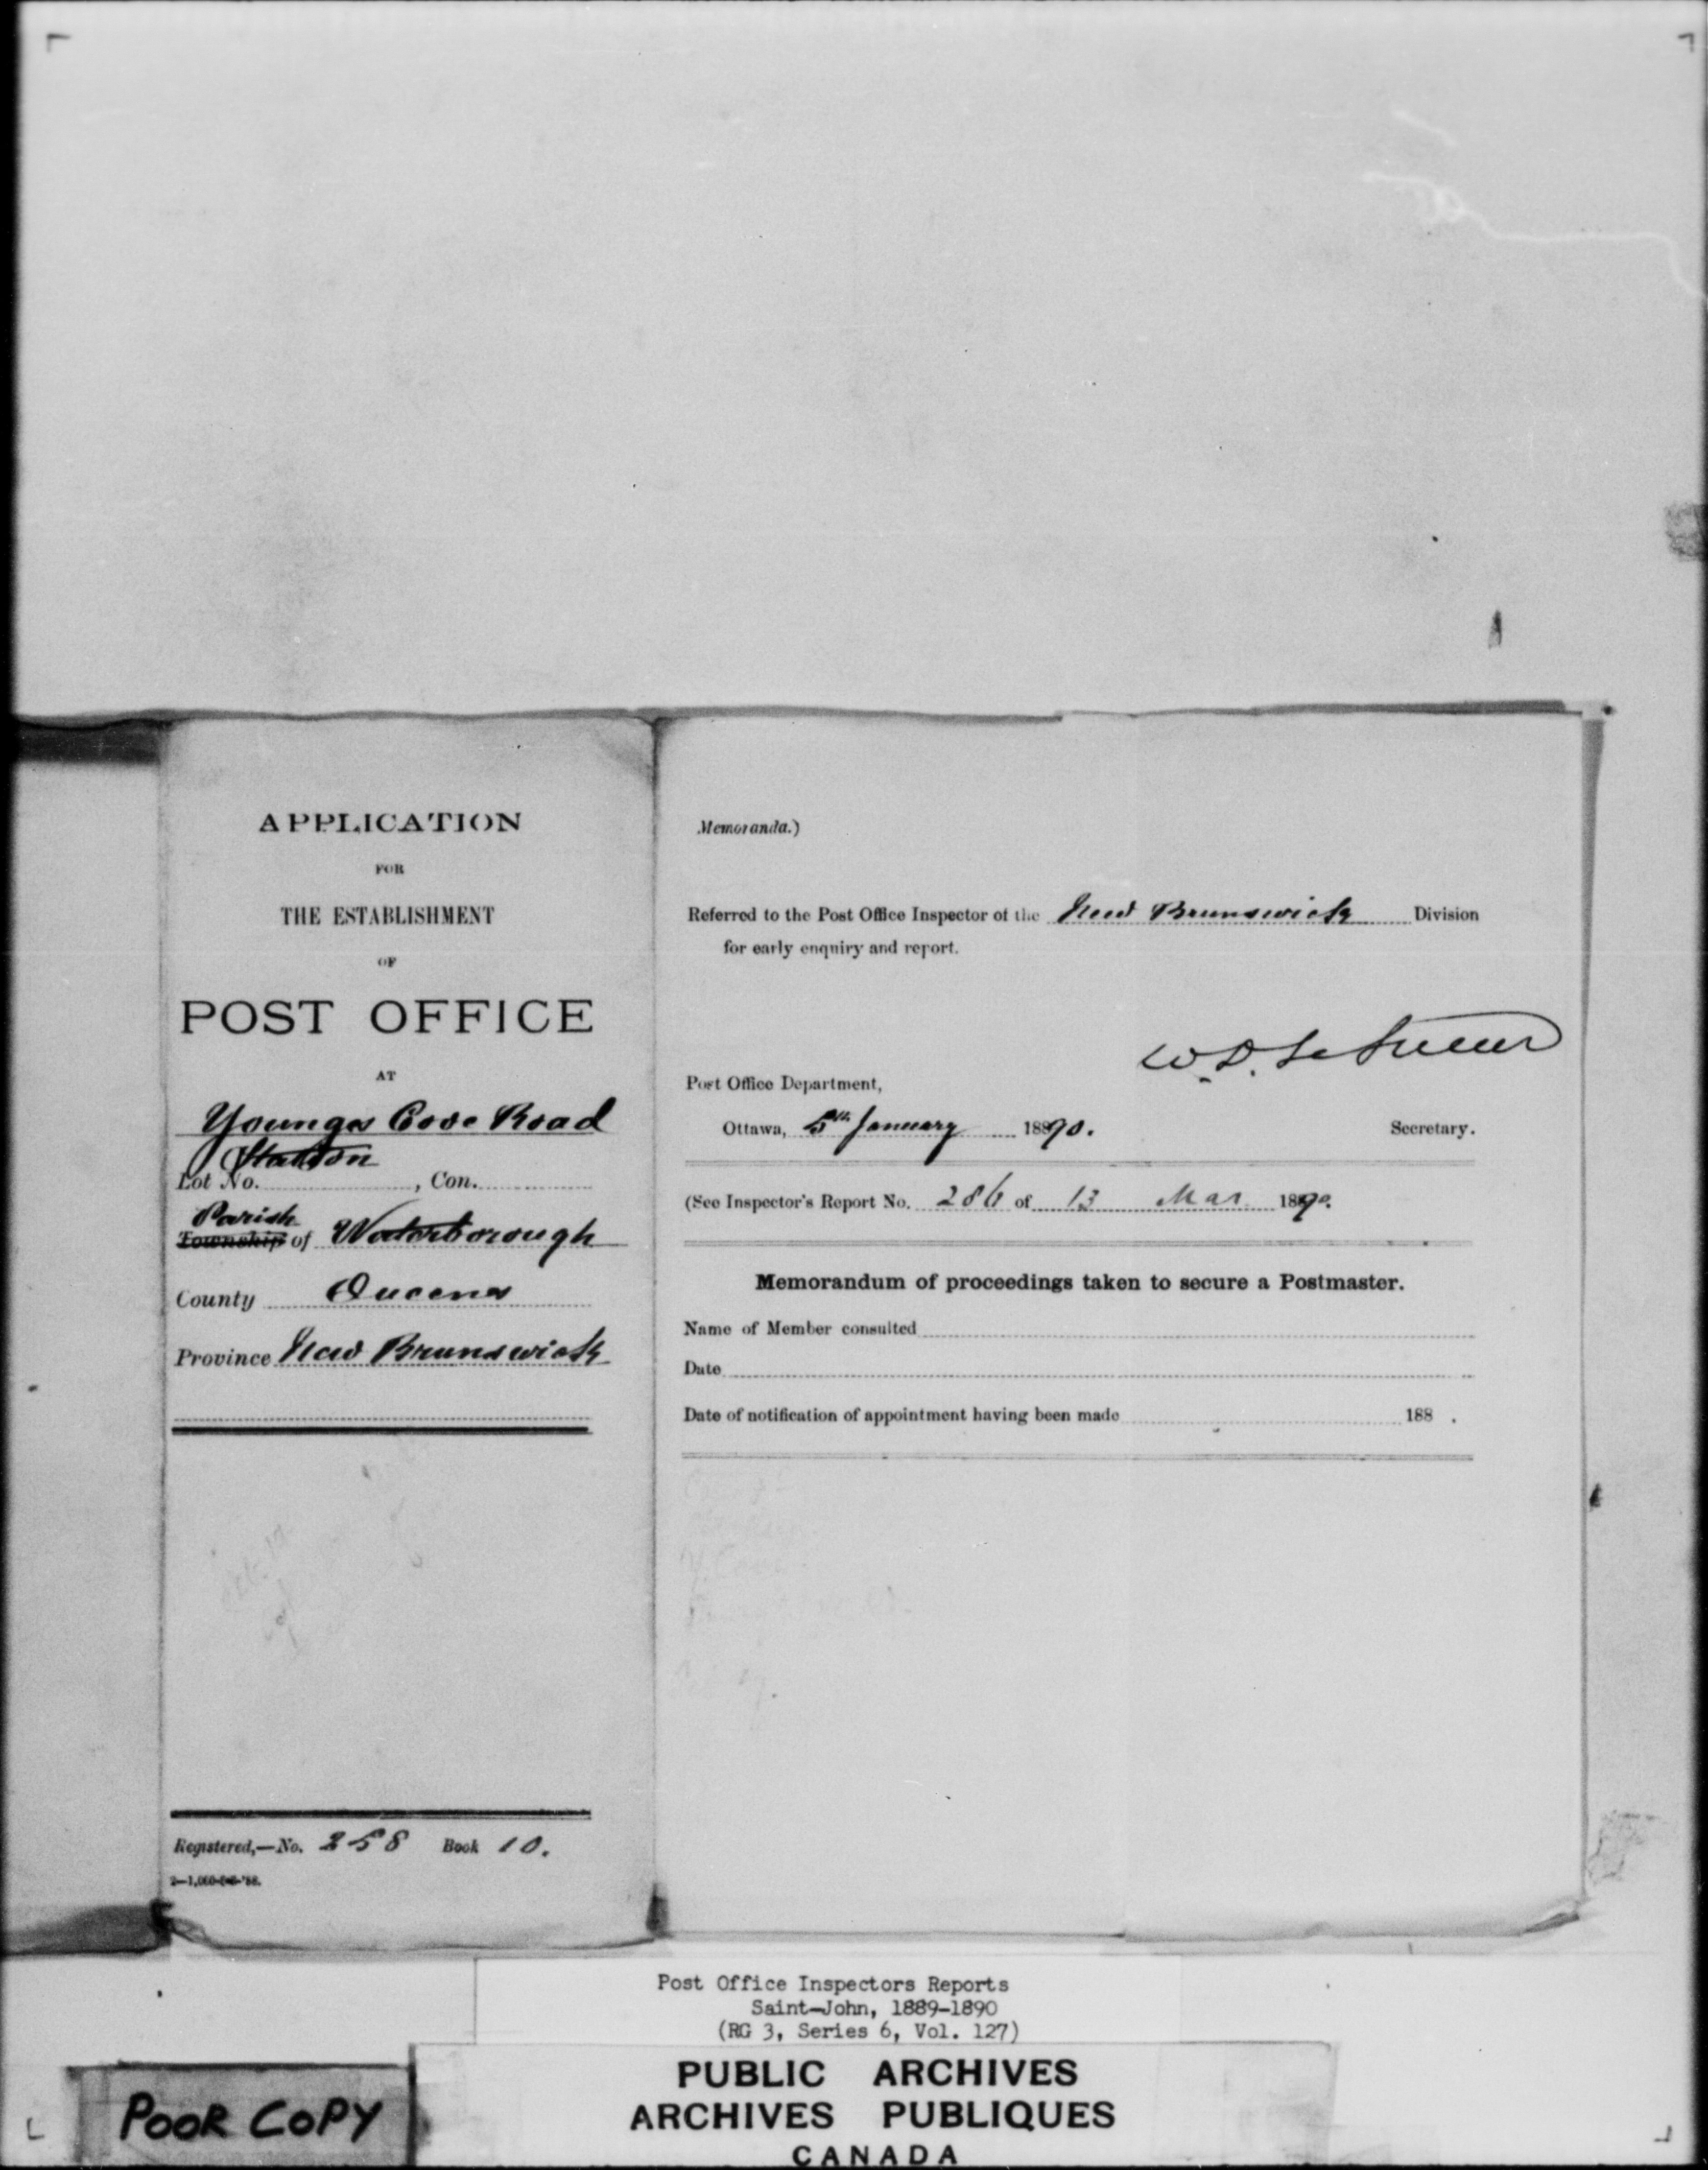 APPLICATION
FOR
THE ESTABLISHMENT
OF
POST OFFICE
AT
Youngs Cove Road
Station
Lot No. , Con.
Parish
Township of Waterborough
County Queens
Province New Brunswick
Registered,—No. 258 Book 10.
Memoranda.)
Referred to the Post Office Inspector of the New Brunswick Division
for early enquiry and report.
W.D. LeSueur
Post Office Department,
Ottawa, 5th January 1890.
Secretary.
(See Inspector's Report No. 286 of 13 Mar 1890.
Memorandum of proceedings taken to secure a Postmaster.
Name of Member consulted
Date
Date of notification of appointment having been made 188 .
Post Office Inspectors Reports
Saint-John, 1889-1890
(RG 3, Series 6, Vol. 127)
POOR COPY
PUBLIC ARCHIVES
ARCHIVES PUBLIQUES
CANADA